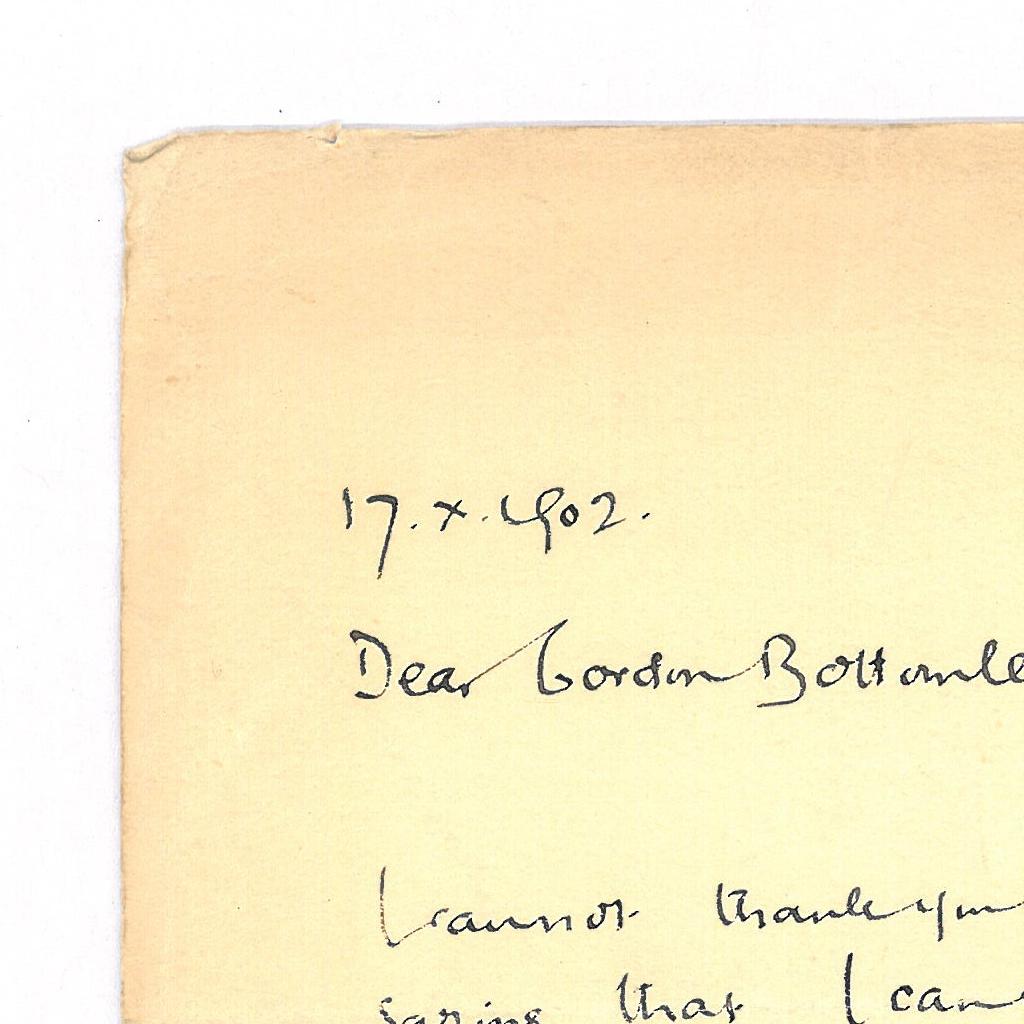 17.X.1902.
Dear Gordon Bottomle
I cannot thank you
saying that I can